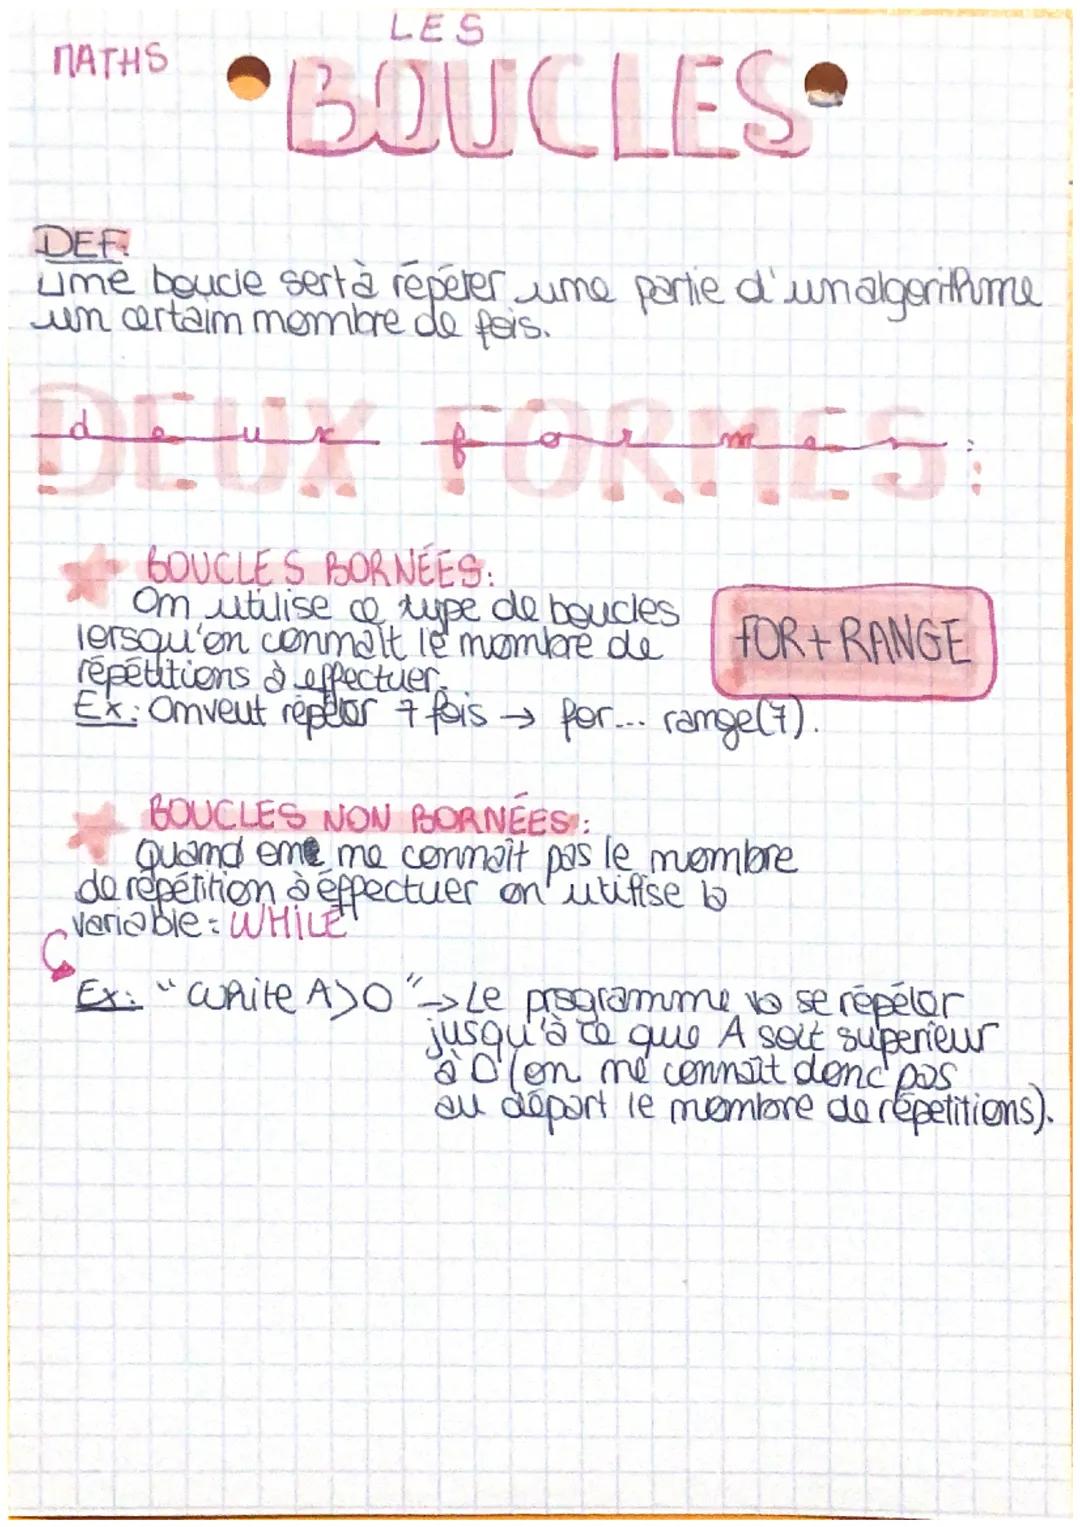 LES
MATHS
BOUCLES
DEF:
Une boucle sert à répéter une partie d'un algorithme
un certain nombre de fois.
DEUX FORMES:
deux formes:
BOUCLES BORNÉES:
On utilise ce type de boucles
lorsqu'on connaît le nombre de
répétitions à effectuer.
FOR + RANGE
Ex: On veut répéter 7 fois → for... range(7).
BOUCLES NON BORNÉES:
quand one ne connaît pas le nombre
de répétition à éffectuer on utilise la
variable: WHILE
Ex: "While A>0" → Le programme va se répéter
jusqu'à ce que A soit superieur
à 0 (on ne connaît donc pas
au départ le nombre de répetitions).